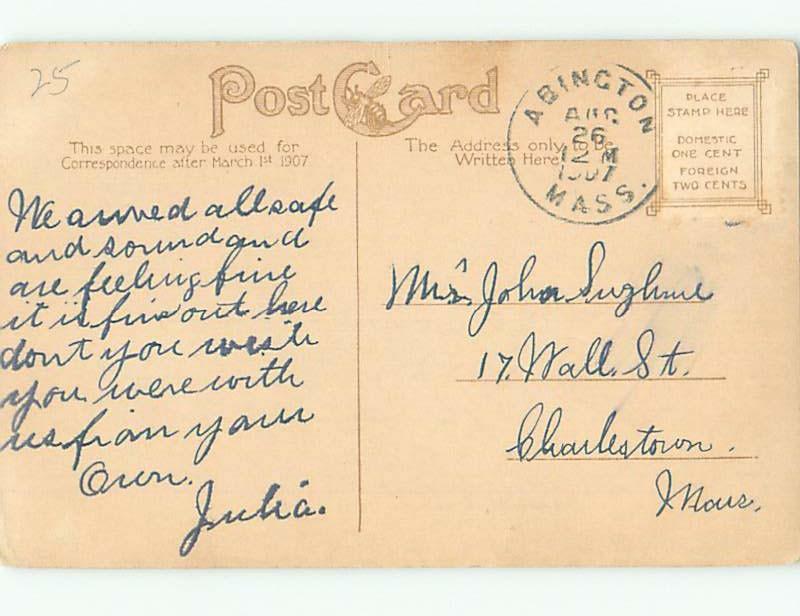 25
Post Card
This space may be used for
Correspondence after March 1st 1907
The Address only to Be
Written Here
ABINGTON
AUG
26
12 M
1907
MASS.
PLACE
STAMP HERE
DOMESTIC
ONE CENT
FOREIGN
TWO CENTS
We arrived all safe
and sound and
are feeling fine
it is fine out here
dont you wish
you were with
us from your
Own.
Julia.
Mrs John
17. Wall. St.
Charlestown.
Mass.